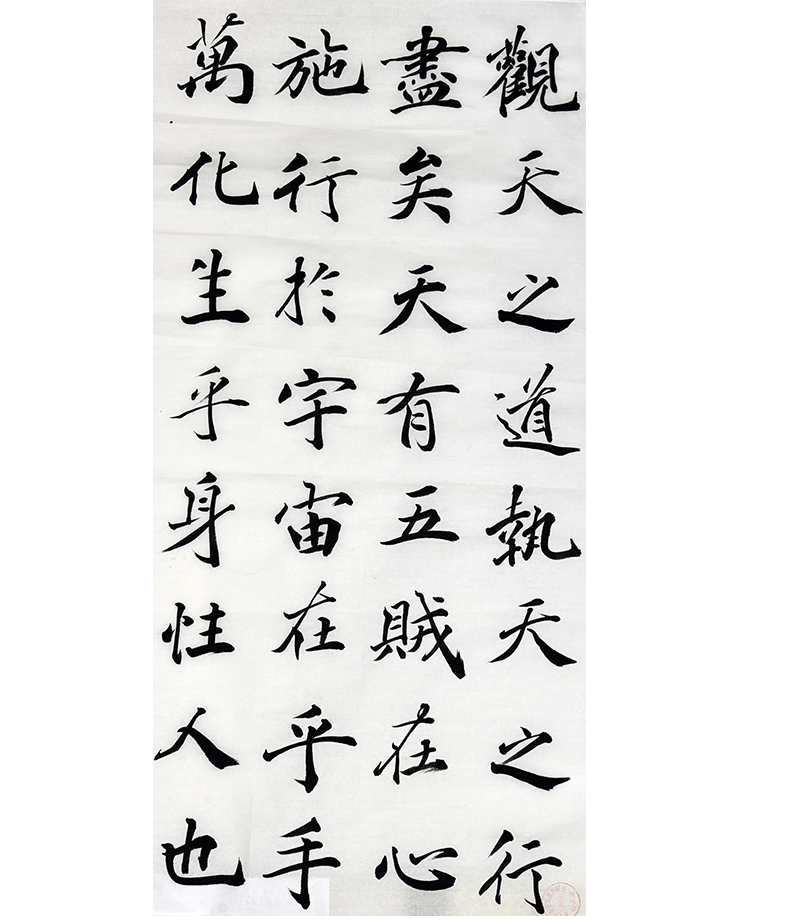 觀天之道執天之行
盡矣天有五賊在心
施行於宇宙在乎手
萬化生乎身性人也